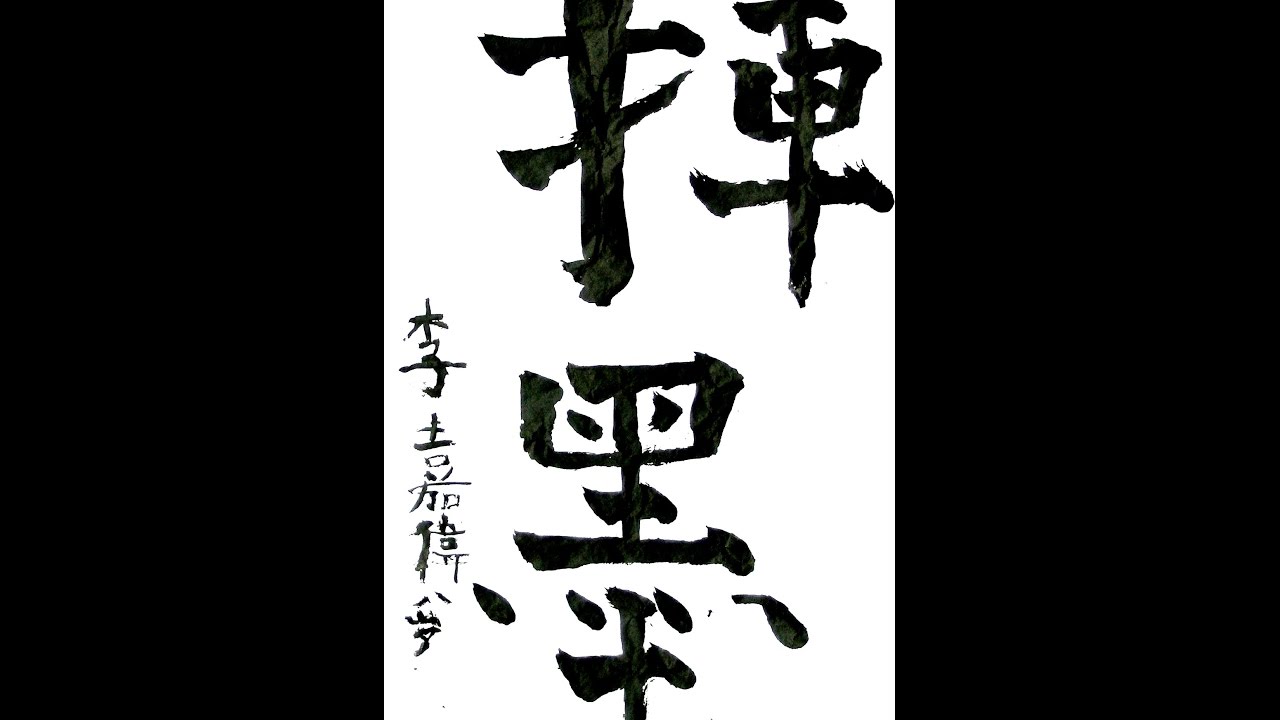 揮墨
李嘉偉八岁